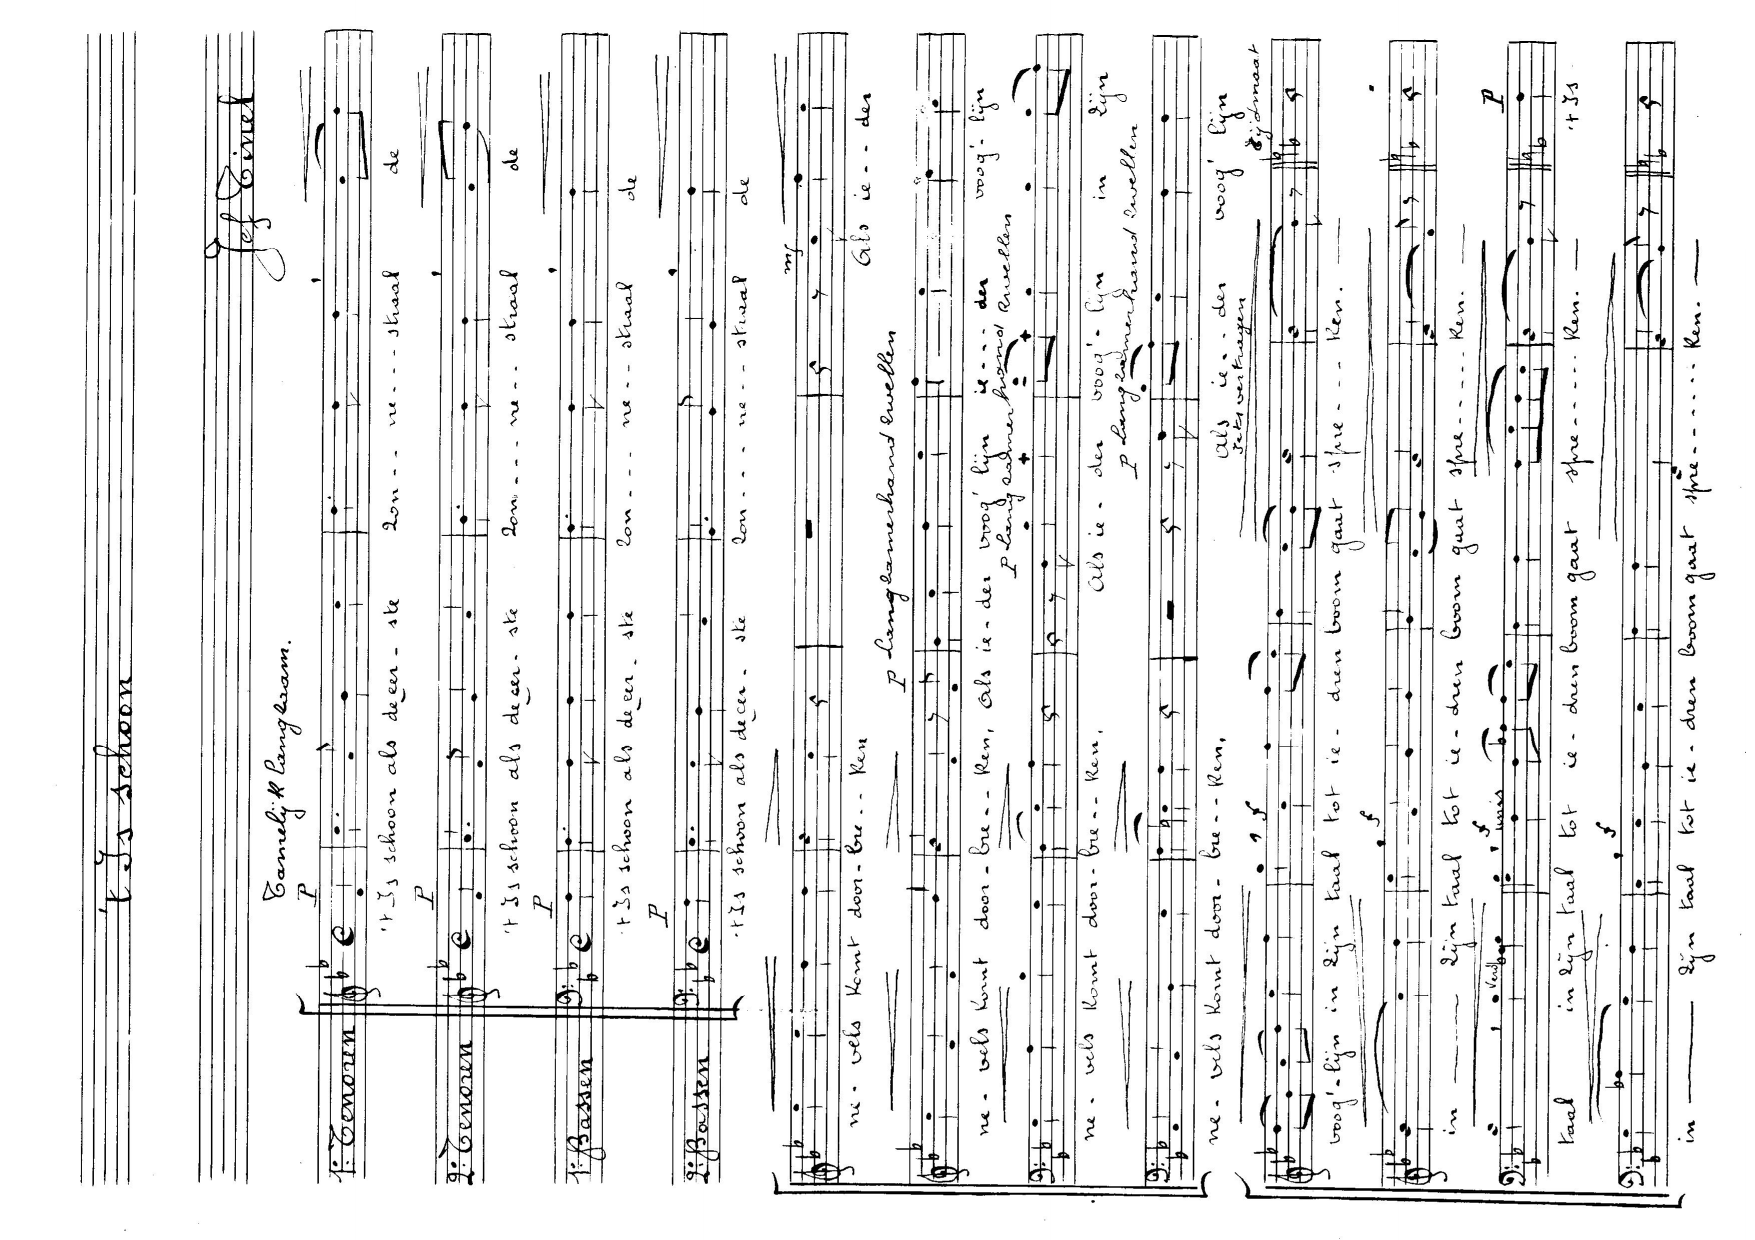 't Is schoon
Jef Tinel
Tamelijk langzaam.
P
1: Tenoren
't Is schoon als de eer- ste zon--- ne--- straal de
P
2: Tenoren
't Is schoon als de eer- ste zon--- ne--- straal de
P
1: Bassen
't Is schoon als de eer- ste zon--- ne--- straal de
P
2: Bassen
't Is schoon als de eer- ste zon--- ne--- straal de
mf
ne- vels komt door- bre-- ken Als ie-- der
P langzamerhand zwellen
ne- vels komt door- bre-- ken, Als ie- der voog' lijn ie--- der voog'- lijn
P langzamerhand zwellen
ne- vels komt door- bre-- ken, Als ie- der voog'- lijn in zijn
P langzamerhand zwellen
ne- vels komt door- bre-- ken, Als ie-- der voog' lijn
f iets vertragen Tijdmaat
voog'- lijn in zijn taal tot ie- dren boom gaat spre---- ken.
f
in zijn taal tot ie- dren boom gaat spre----- ken.
f unis P
taal in zijn taal tot ie- dren boom gaat spre---- ken. 't Is
f
in zijn taal tot ie- dren boom gaat spre------ ken.